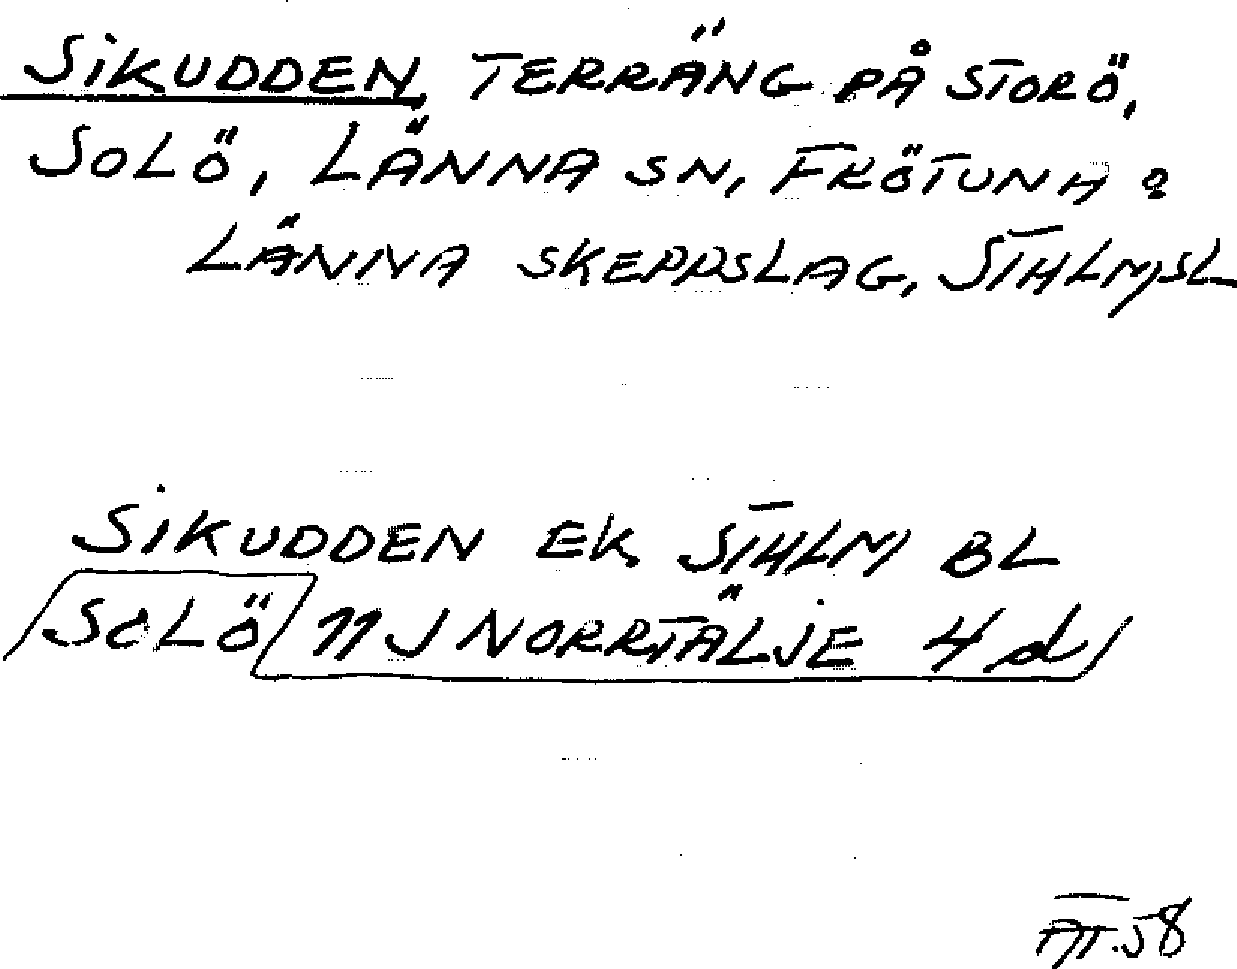 SIKUDDEN, TERRÄNG PÅ STORÖ,
SOLÖ, LÄNNA SN, FRÖTUNA o
LÄNNA SKEPPSLAG, STHLMSL
SIKUDDEN EK STHLM BL
SOLÖ 11J NORRTÄLJE 4d